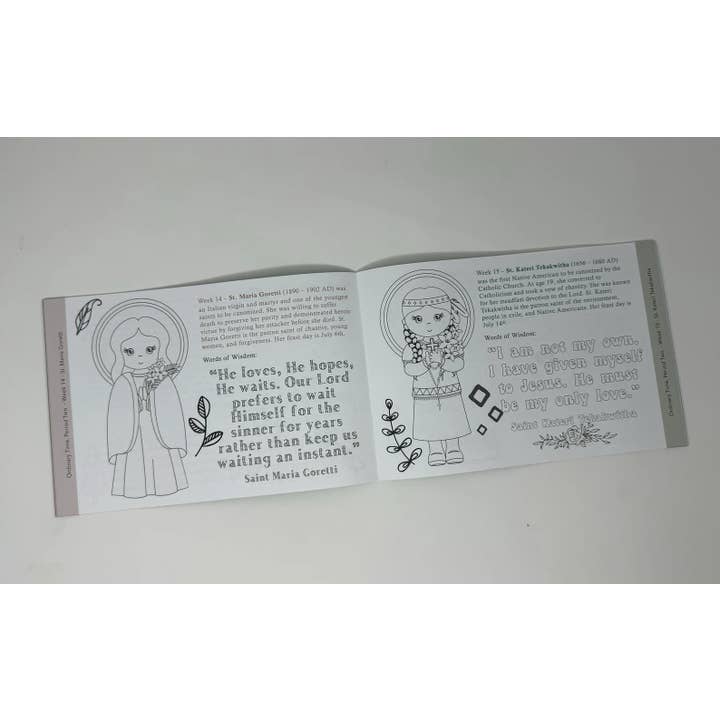 Ordinary Time, Period Two - Week 14 - St. Maria Goretti
Week 14 - St. Maria Goretti (1890 - 1902 AD) was
an Italian virgin and martyr and one of the youngest
saints to be canonized. She was willing to suffer
death to preserve her purity and demonstrated heroic
virtue by forgiving her attacker before she died. St.
Maria Goretti is the patron saint of chastity, young
women, and forgiveness. Her feast day is July 6th.
Words of Wisdom:
"He loves, He hopes,
He waits. Our Lord
prefers to wait
Himself for the
sinner for years
rather than keep us
waiting an instant."
Saint Maria Goretti
Week 15 - St. Kateri Tekakwitha (1656 - 1680 AD)
was the first Native American to be canonized by the
Catholic Church. At age 19, she converted to
Catholicism and took a vow of chastity. She was known
for her steadfast devotion to the Lord. St. Kateri
Tekakwitha is the patron saint of the environment,
people in exile, and Native Americans. Her feast day is
July 14th.
Words of Wisdom:
"I am not my own.
I have given myself
to Jesus. He must
be my only love."
Saint Kateri Tekakwitha
Ordinary Time, Period Two - Week 15 - St. Kateri Tekakwitha